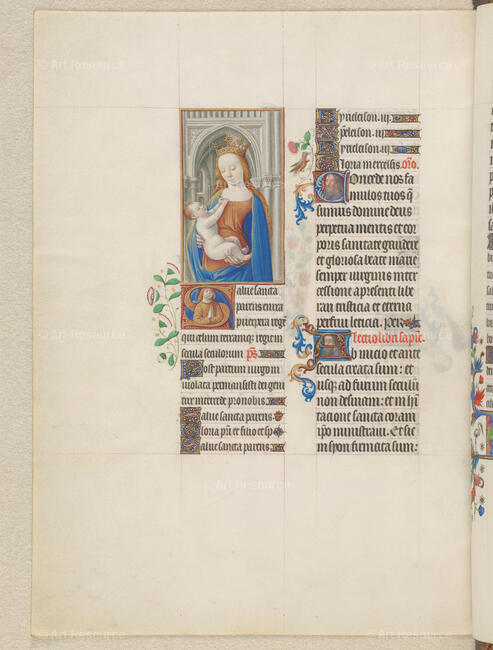 Salve sancta
parens enixa
puerpera rege
qui celum terramque regit in
secula seculorum ps.
Post partum virgo in
violata permansisti dei geni
trix intercede pro nobis
Salve sancta parens
Gloria patri et filio et sp
Salve sancta parens
Kyrieleison .iij.
Xpeleison .iij.
Kyrieleison .iij.
Gloria in excelsis. oro.
Concede nos fa
mulos tuos q
sumus domine deus
perpetua mentis et cor
poris sanitate gaudere
et gloriosa beate marie
semper virginis inter
cessione a presenti libe
rari tristicia et eterna
perfrui leticia. Per
Lectio libri sapie.
Ab inicio et ante
secula creata sum: et
usque ad futurum seculum
non desinam: et in habi
tacione sancta coram
ipso ministravi. Et sic
in syon firmata sum:
© Art Resource
© Art Resource
© Art Resource
© Art Resource
© Art Resource
© Art Resource
© Art Resource